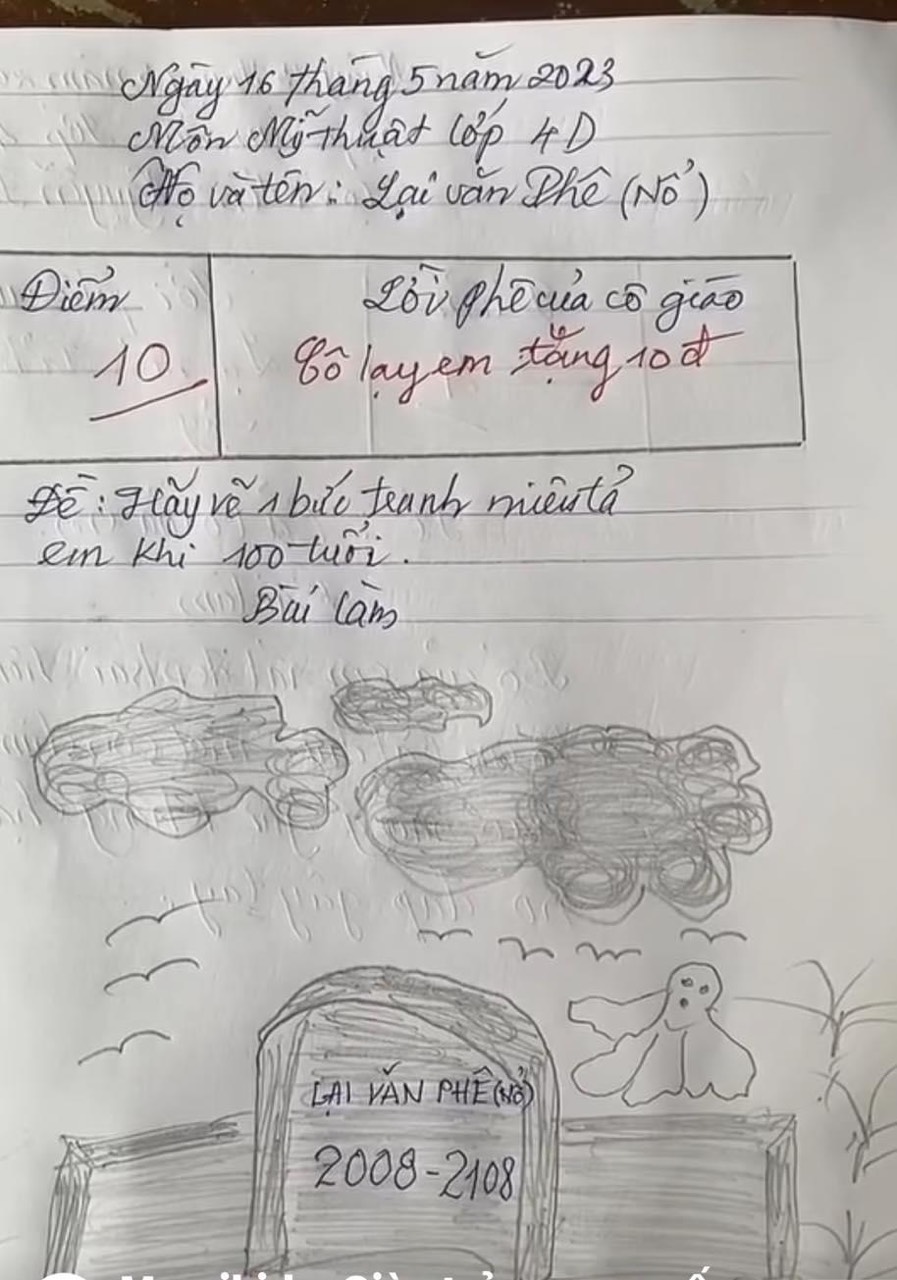 Ngày 16 tháng 5 năm 2023
Môn Mỹ thuật lớp 4D
Họ và tên: Lại văn Phê (Nổ)
Điểm
Lời phê của cô giáo
10
Cô lạy em tặng 10 đ
Đề: Hãy vẽ 1 bức tranh miêu tả
em khi 100 tuổi.
Bài làm
LẠI VĂN PHÊ (NỔ)
2008-2108